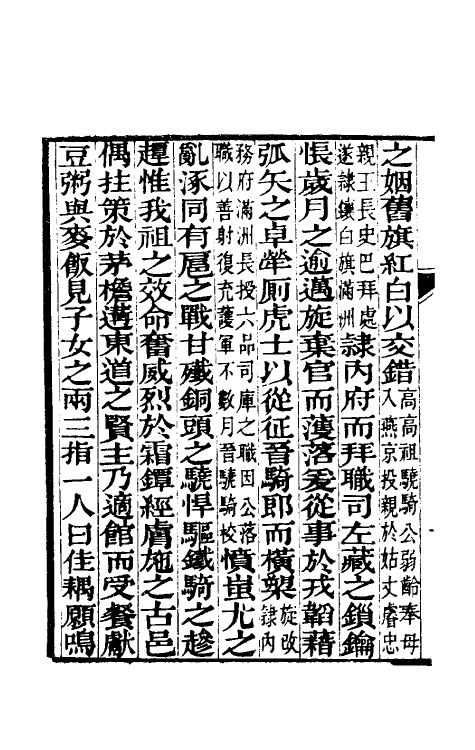 之姻舊旗紅白以交錯高高祖驍騎公弱齡奉母入燕京投親於姑丈睿忠
親王長史巴拜處遂隸鑲白旗滿洲隸內府而拜職司左藏之鎖鑰
悵歲月之逾邁旋棄官而蒦落爰從事於戎韜藉
弧矢之卓犖廁虎士以從征晉騎郎而橫槊旋改隸內
務府滿洲長授六品司庫之職因公落職以善射復充護軍不數月晉驍騎校憤蚩尤之
亂涿同有扈之戰甘殲銅頭之驍悍驅鐵騎之趁
趯惟我祖之效命奮威烈於霜鐔經膚施之古邑
偶拄策於茅檐遘東道之賢主乃適館而受餐獻
豆粥與麥飯見子女之兩三指一人曰佳耦願鳴